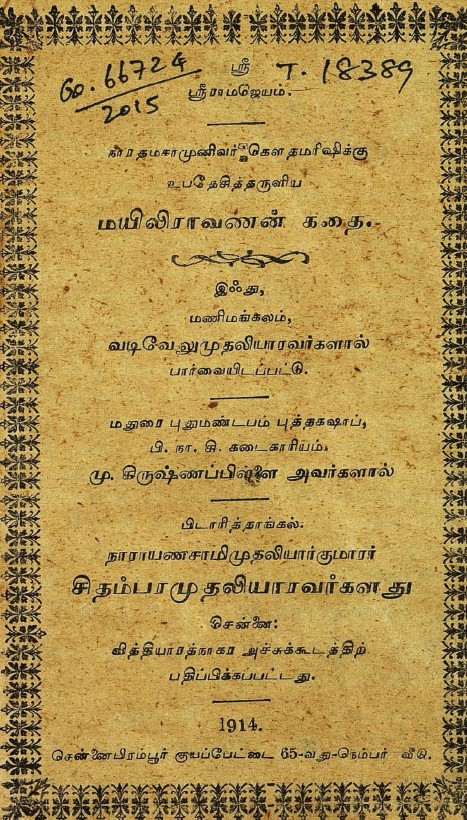 Go. 66724
2015
T. 18389
ஸ்ரீ
ஸ்ரீராமஜெயம்.
நாரதமகாமுனிவர் கௌதமரிஷிக்கு
உபதேசித்தருளிய
மயிலிராவணன் கதை.
இஃது,
மணிமங்கலம்,
வடிவேலுமுதலியாரவர்களால்
பார்வையிடப்பட்டு.
மதுரை புதுமண்டபம் புத்தகஷாப்,
பி. நா. சி. கடைகாரியம்.
மு. கிருஷ்ணப்பிள்ளை அவர்களால்
பிடாரித்தாங்கல்.
நாராயணசாமிமுதலியார்குமாரர்
சிதம்பரமுதலியாரவர்களது
சென்னை:
வித்தியாரத்நாகர அச்சுக்கூடத்திற்
பதிப்பிக்கப்பட்டது.
1914.
சென்னைபிரம்பூர் குயப்பேட்டை 65-வது-நெம்பர் வீடு.